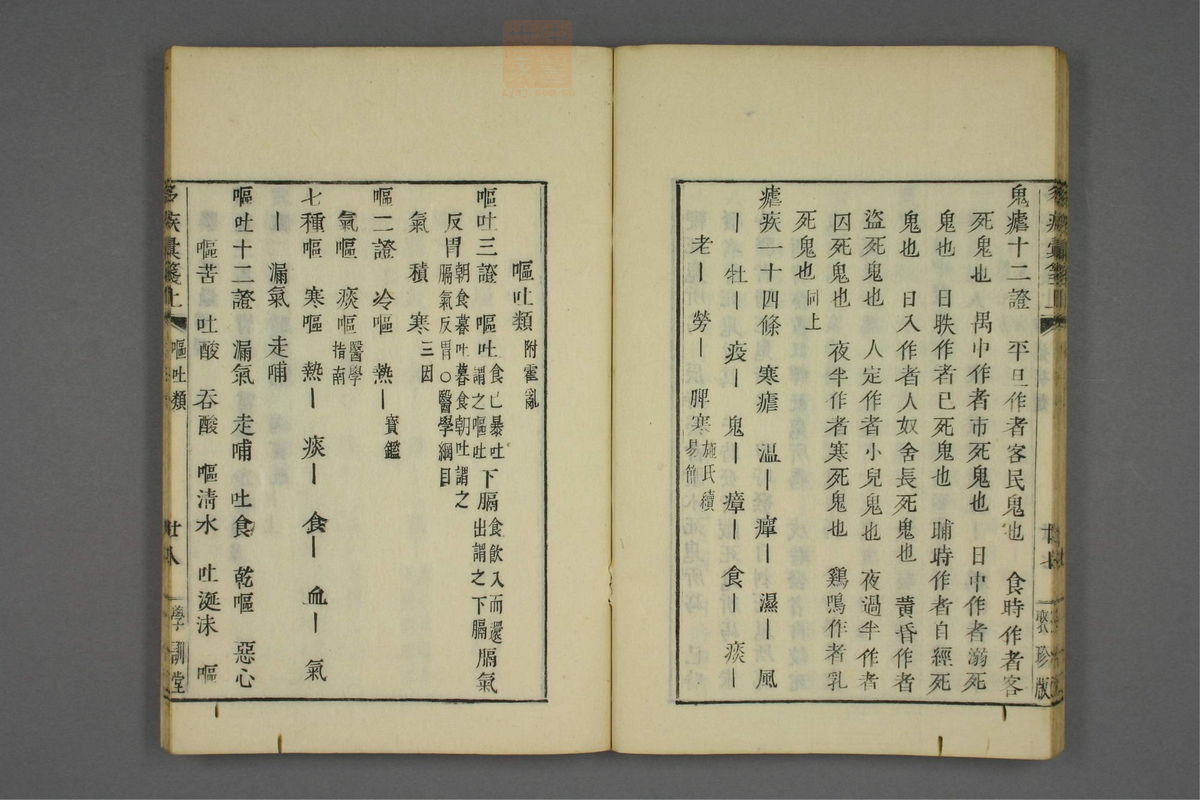 鬼瘧十二證　平旦作者客民鬼也　食時作者客
死鬼也　禺中作者市死鬼也　日中作者溺死
鬼也　日昳作者已死鬼也　晡時作者自經死
鬼也　日入作者人奴舍長死鬼也　黄昏作者
盜死鬼也　人定作者小兒鬼也　夜過半作者
囚死鬼也　夜半作者寒死鬼也　鷄鳴作者乳
死鬼也 同上
瘧疾一十四條　寒瘧　溫｜　癉｜　濕｜　風
｜　牡｜　疫｜　鬼｜　瘴｜　食｜　痰｜
老｜　勞｜　脾寒 施氏續易簡
嘔吐類 附霍亂
嘔吐三證　嘔吐 食已暴吐謂之嘔吐　下膈 食飲入而還出謂之下膈　膈氣
反胃 朝食暮吐暮食朝吐謂之膈氣反胃○醫學綱目
氣　積　寒 三因
嘔二證　冷嘔　熱｜ 寶鑑
氣嘔　痰嘔 醫學指南
七種嘔　寒嘔　熱｜　痰｜　食｜　血｜　氣
｜　漏氣　走哺
嘔吐十二證　漏氣　走哺　吐食　乾嘔　惡心
嘔苦　吐酸　吞酸　嘔清水　吐涎沫　嘔
疾彙箋上　嘔吐類　廿八　學訓堂
聚珍版